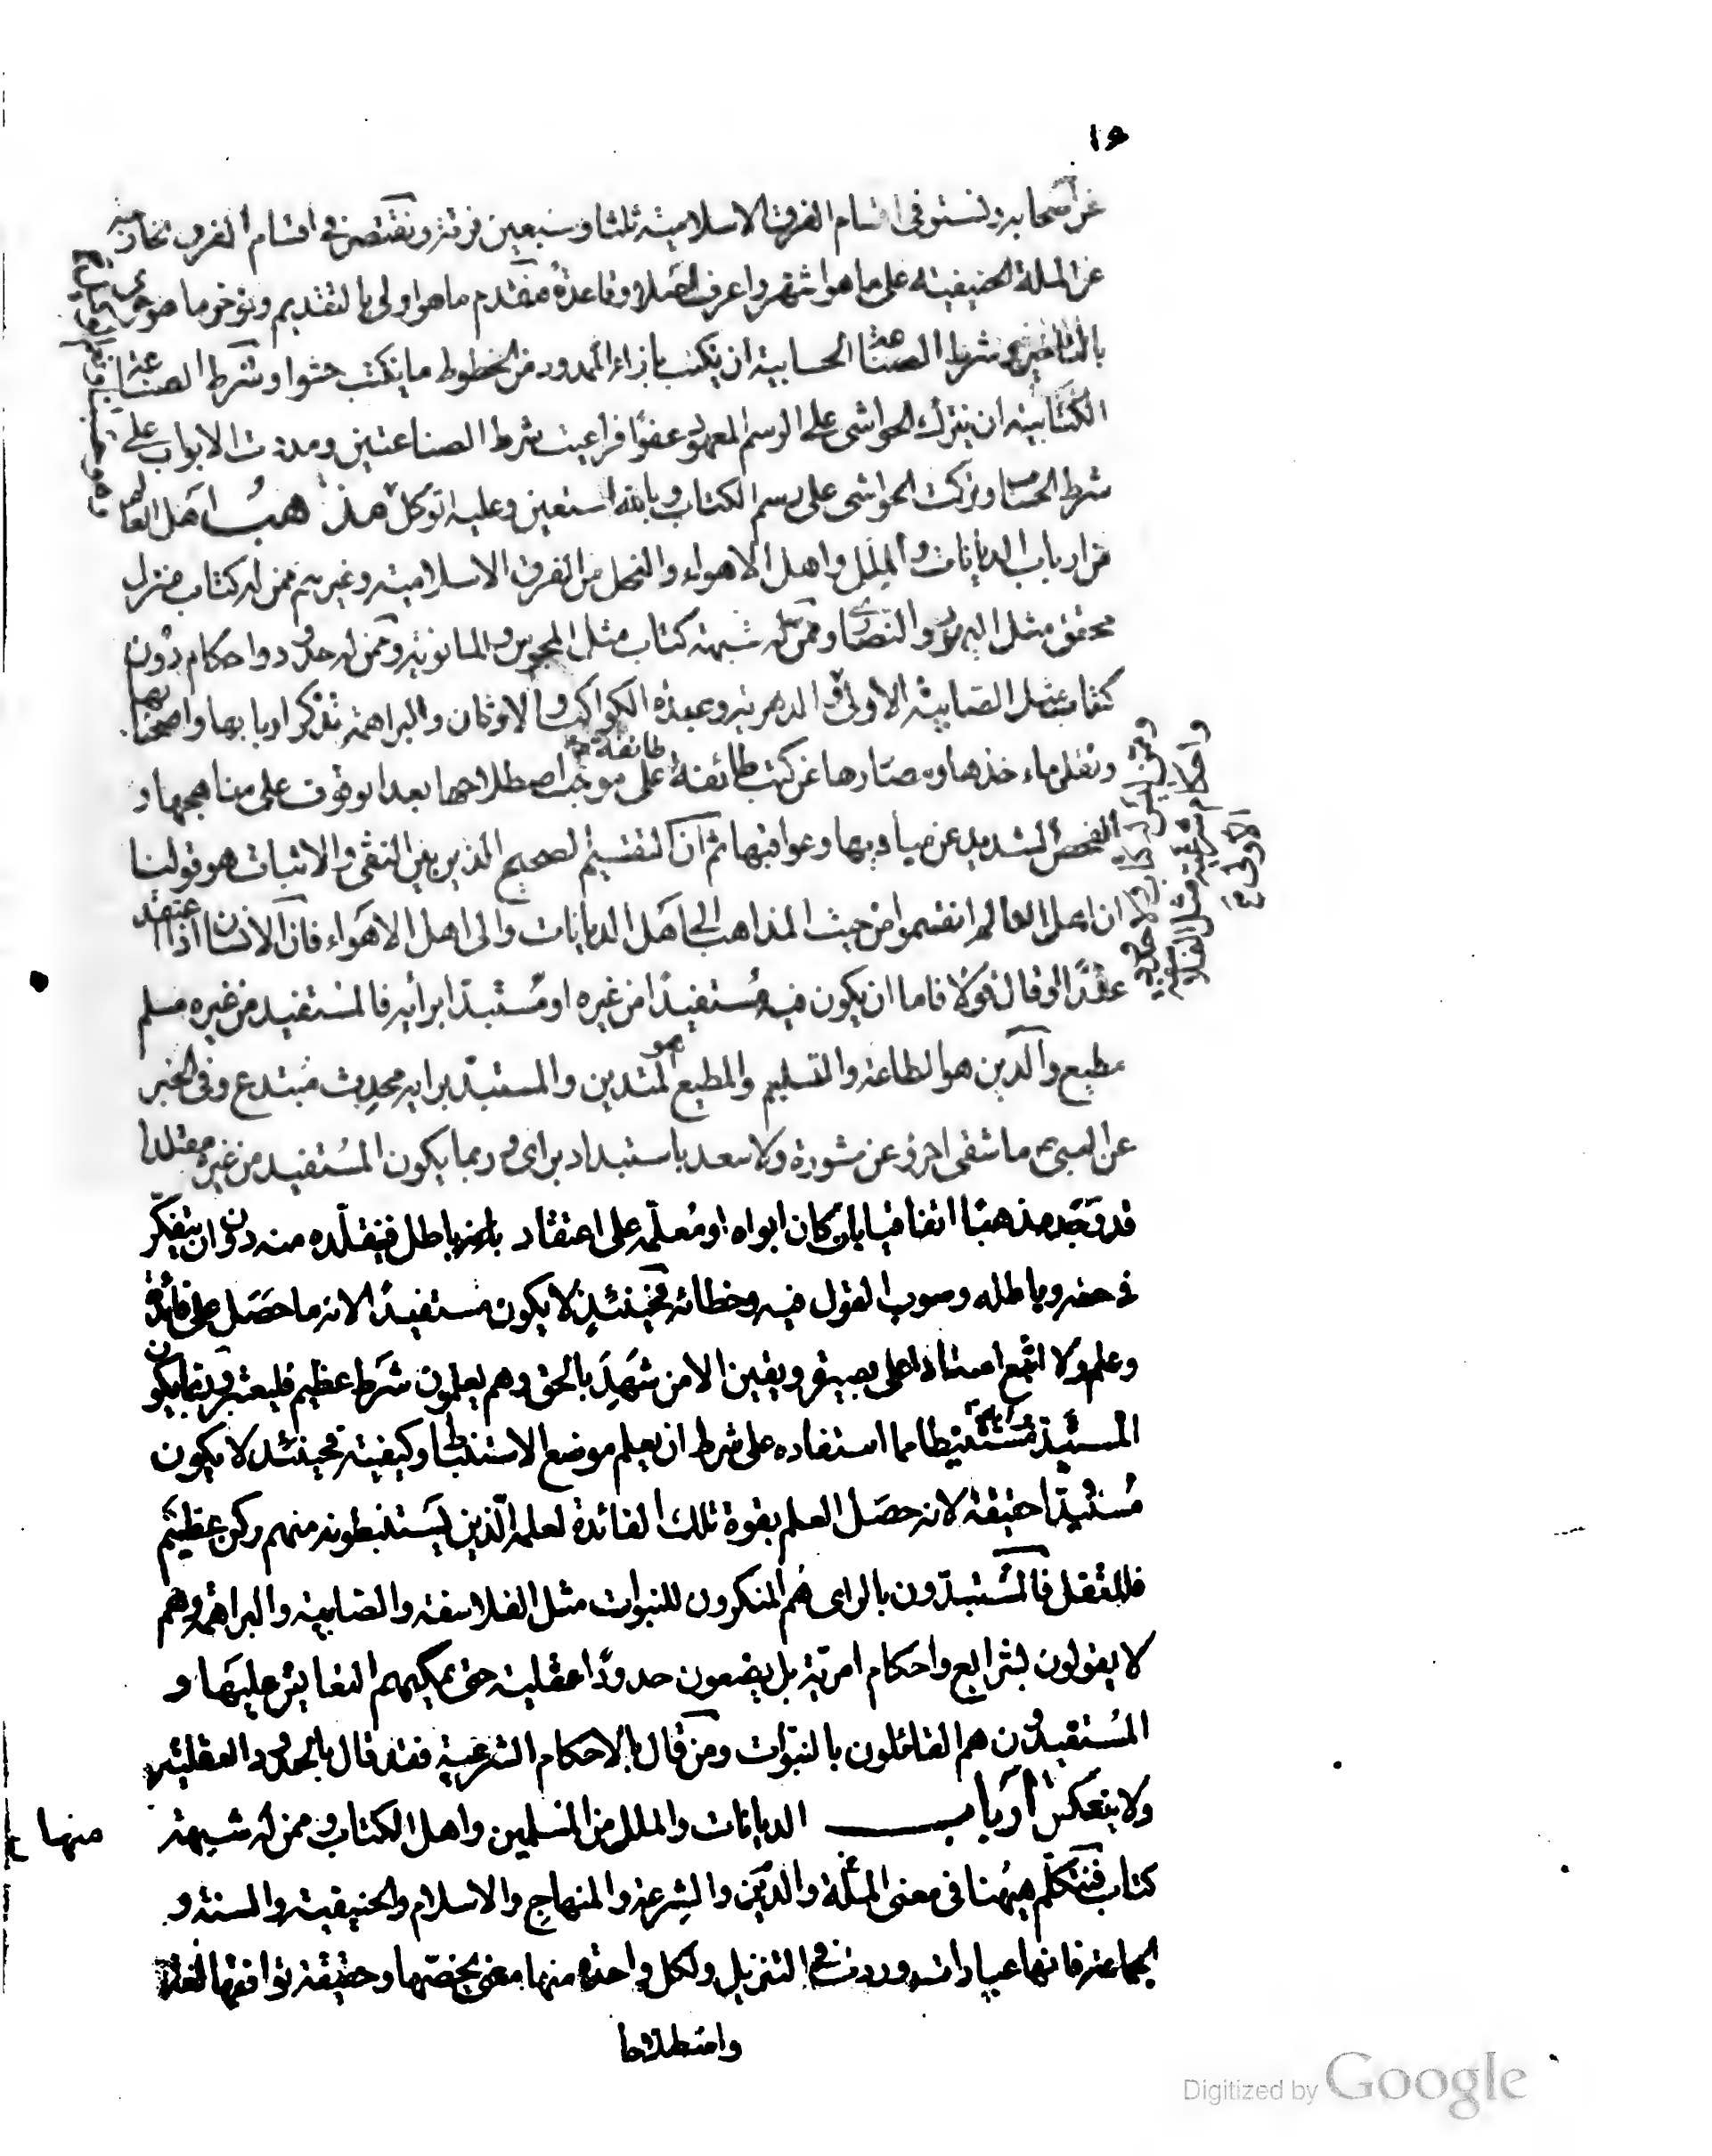 ١٥
عن أصحابه ونستوفى اقسام الفرق الاسلامية ثلثا وسبعين فرقة ونقتصر فى اقسام الفرق الخارجة
عن الملة الحنيفية على ما هو اشهر واعرف اصلا وقاعدة فنقدم ما هو اولى بالتقديم ونوخر ما هو
بالتاخير وشرط الصناعة الحسابية ان يكتب بازاء الممدود من الخطوط ما يكتب حشوا وشرط الصناعة
الكتابية ان يترك الحواشى على الرسم المعهود عفوا فراعيت شرط الصناعتين ومددت الابواب على
شرط الحساب وتركت الحواشى على رسم الكتاب وبالله استعين وعليه اتوكل مذاهب اهل العالم
من ارباب الديانات والملل واهل الاهواء والنحل من الفرق الاسلامية وغيرهم ممن له كتاب منزل
محقق مثل اليهود والنصارى وممن له شبهة كتاب مثل المجوس والمانوية وممن له حدود واحكام دون
كتاب مثل الصابية الاولى والدهرية وعبدة الكواكب والاوثان والبراهمة نذكر اربابها واصحابها
وننقل ماءخذها ومصادرها عن كتب طائفة طائفة على موجب اصطلاحها بعد الوقوف على مناهجها و
الفحص الشديد عن مباديها وعواقبها ثم ان التقسيم الصحيح الدائر بين النفى والاثبات هو قولنا
ان اهل العالم انقسموا من حيث المذاهب الى اهل الديانات والى اهل الاهواء فان الانسان اذا اعتقد
عقدا او قال قولا فاما ان يكون فيه مستفيدا من غيره او مستبدا برأيه فالمستفيد من غيره مسلم
مطيع والدين هو الطاعة والتسليم والمطيع هو المتدين والمستبد برايه محدث مبتدع وفى الخبر
عن النبى ما شقى امرؤ عن مشورة ولا سعد باستبداد براى وربما يكون المستفيد من غيره مقلدا
قد وجد مذهبا اتفاقيا بان كان ابواه او معلمه على اعتقاد باطل فيقلده منه دون ان يتفكر
فى حقه وباطله وصواب القول فيه وخطائه فحينئذ لا يكون مستفيدا لانه ما حصل على فائدة
وعلم ولا اتبع استاذا على بصيرة ويقين الا من شهد بالحق وهم يعلمون شرط عظيم فليعتبر وربما يكون
المستبد مستنبطا مما استفاده على شرط ان يعلم موضع الاستنباط وكيفيته فحينئذ لا يكون
مستبدا حقيقة لانه حصل العلم بقوة تلك الفائدة لعلمه الذين يستنبطونه منهم ركن عظيم
فلا تغفل فالمستبدون بالراى هم المنكرون للنبوات مثل الفلاسفة والصابية والبراهمة وهم
لا يقولون بشرايع واحكام امرية بل يضعون حدودا عقلية حتى يمكنهم التعايش عليها و
المستفيدون هم القائلون بالنبوات ومن قال بالاحكام الشرعية فقد قال بالحدود العقلية
ولا ينعكس ارباب الديانات والملل من المسلمين واهل الكتاب وممن له شبهة
منها
كتاب فنتكلم ههنا فى معنى الملة والدين والشرعة والمنهاج والاسلام والحنيفية والسنة و
الجماعة فانها عبارات وردت فى التنزيل ولكل واحدة منها معنى يخصها وحقيقة توافقها لغة
واصطلاحا
Digitized by Google